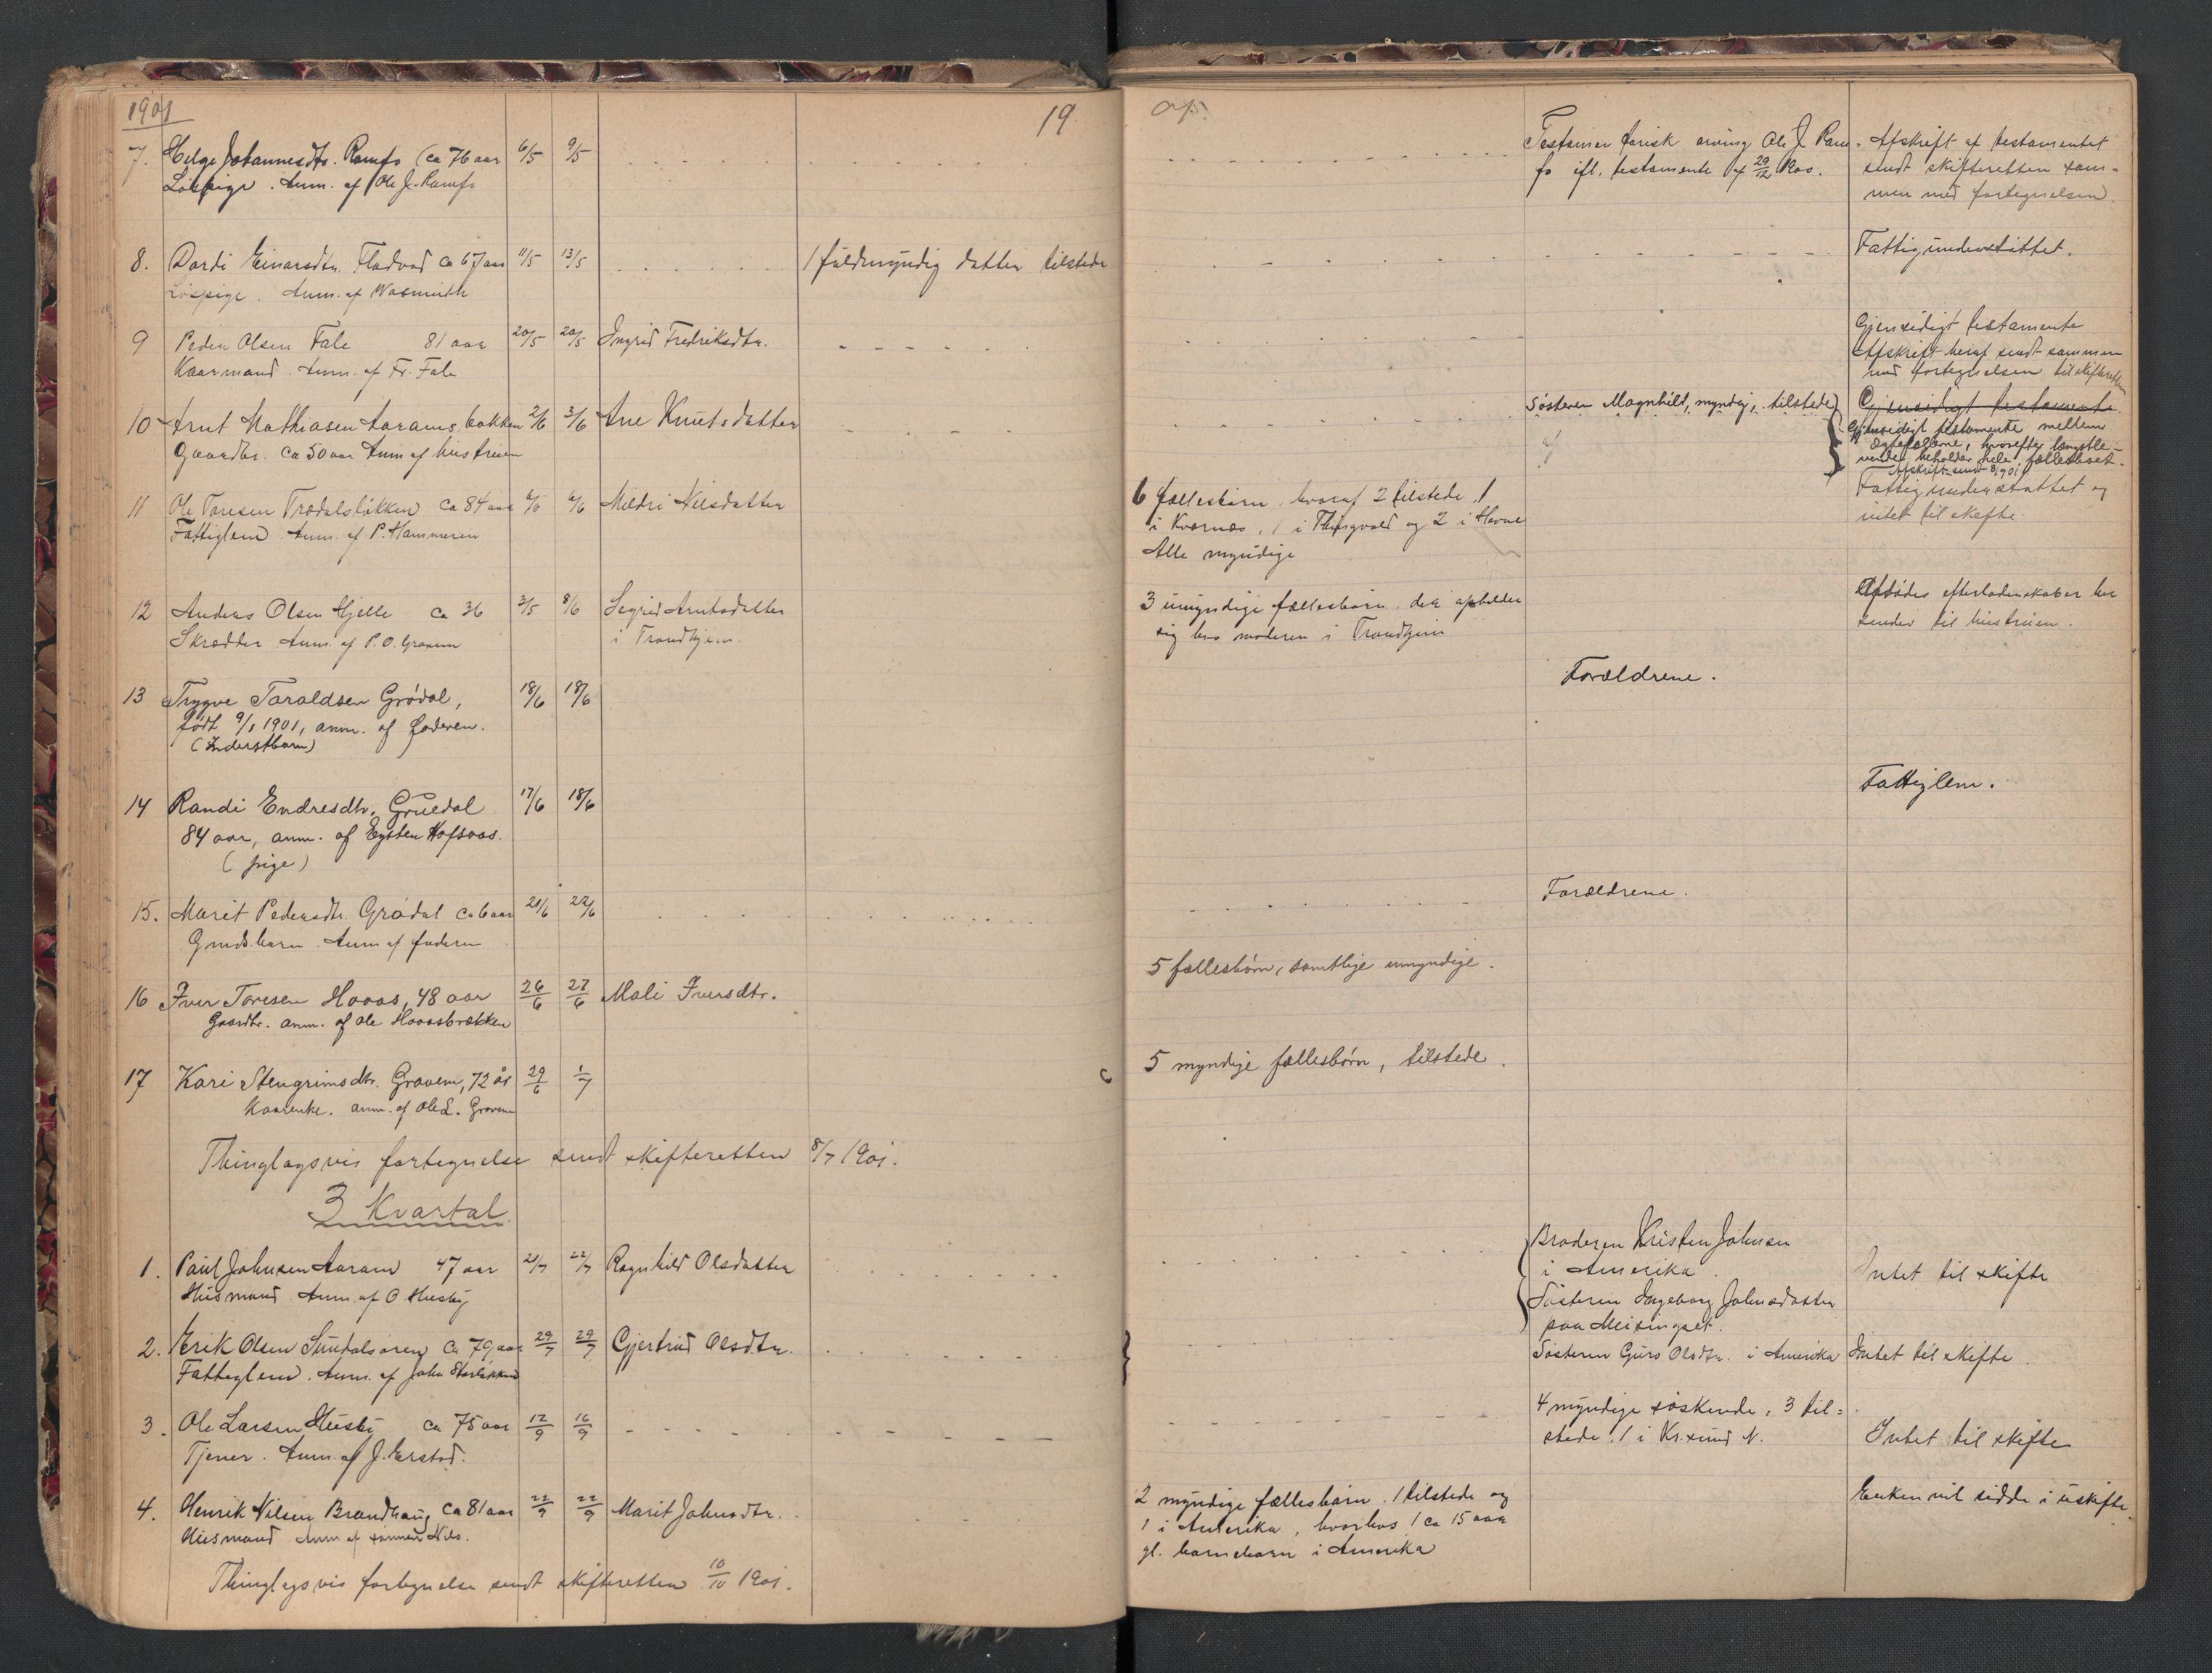 1901
19
7. Helge Johannesdtr. Ramfo (ca 76 aar 6/5 9/5
Testamentarisk arving Ole J. Ram-
Afskrift af testamentet
Løspige. Anm. af Ole J. Ramfo
fo ifl. testamente af 29/12 1900.
sendt skifteretten sam-
men med fortegnelsen.
8. Dordi Einarsdtr. Fladvad ca 67 aar 11/5 13/5 1 fuldmyndig datter tilstede
Fattigunderstøttet.
Løspige. Anm. af Wasmuth
9 Peder Olsen Fale 81 aar 20/5 20/5 Ingrid Fredriksdtr.
Gjensidigt testamente
Kaarmand. Anm. af Fr. Fale
Afskrift heraf sendt sammen
med fortegnelsen til skifteretten
10 Arnt Mathiasen Aaramsbakken 2/6 3/6 Ane Knutsdatter
Søsteren Magnhild, myndig, tilstede
Gjensidigt testamente
Gaardbr. ca 50 aar Anm. af hustruen
Gjensidigt testamente mellem
ægtefællerne, hvorefter længstle-
vende beholder hele fællesboet.
Afskrift sendt 8/7 1901
11 Ole Toresen Trædalsløkken ca 84 aar 6/6 Mildri Nilsdatter
6 fællesbørn, hvoraf 2 tilstede, 1
Fattigunderstøttet og
Fattiglem Anm. af P. Hammeren
i Kvernæs, 1 i Thingvold og 2 i Havne
intet til skifte
Alle myndige
12 Anders Olsen Hjelle ca 36 3/5 8/6 Segrid Arntsdatter
3 umyndige fællesbørn, der opholder
Afdødes efterladenskaber her
Skrædder Anm. af P. O. Gravem
i Trondhjem.
sig hos moderen i Trondhjem
sendes til hustruen.
13 Trygve Taraldsen Grødal, 18/6 18/6
Forældrene.
født 9/1 1901, anm. af faderen.
(Inderstbarn)
14 Randi Endresdtr. Gruedal 17/6 18/6
Fattiglem.
84 aar, anm. af Eysten Hofsaas.
(pige)
15. Marit Pedersdtr. Grødal ca 6 aar 21/6 22/6
Forældrene.
Grndb. barn. Anm. af faderen
16 Iver Toresen Hoaas, 48 aar 26/6 27/6 Mali Iversdtr.
5 fællesbørn, samtlige umyndige.
Gaardbr. anm. af Ole Hoaasbrækken
17 Kari Stengrimsdtr. Gravem, 72 år 29/6 1/7
5 myndige fællesbørn, tilstede.
Kaarenke. anm. af Ole L. Gravem
Thinglagsvis fortegnelse sendt skifteretten 8/7 1901.
3 Kvartal.
1. Paul Johnsen Aaram 47 aar 21/7 22/7 Ragnhild Olsdatter
Broderen Kristen Johnsen
i Amerika.
Intet til skifte
Husmand. Anm. af O. Husby
Søsteren Ingeborg Johnsdatter
paa Meisingset.
2. Erik Olsen Sundalsøren ca 79 aar 29/7 29/7 Gjertrud Olsdtr.
Søsteren Guro Olsdtr. i Amerika
Intet til skifte.
Fattiglem. Anm. af John Størløkken
3. Ole Larsen Husby ca 75 aar 12/9 16/9
4 myndige søskende, 3 til-
Tjener. Anm. af J. Erstad.
stede, 1 i Kr.sund N.
Intet til skifte
4. Henrik Nilsen Brandhaug ca 81 aar 22/9 22/9 Marit Johnsdtr.
2 myndige fællesbørn. 1 tilstede og
Enken vil sidde i uskifte.
Husmand Anm. af sønnen Nils.
1 i Amerika, hvorhos 1 ca 15 aar
gl. barnebarn i Amerika
Thinglagsvis fortegnelse sendt skifteretten 10/10 1901.